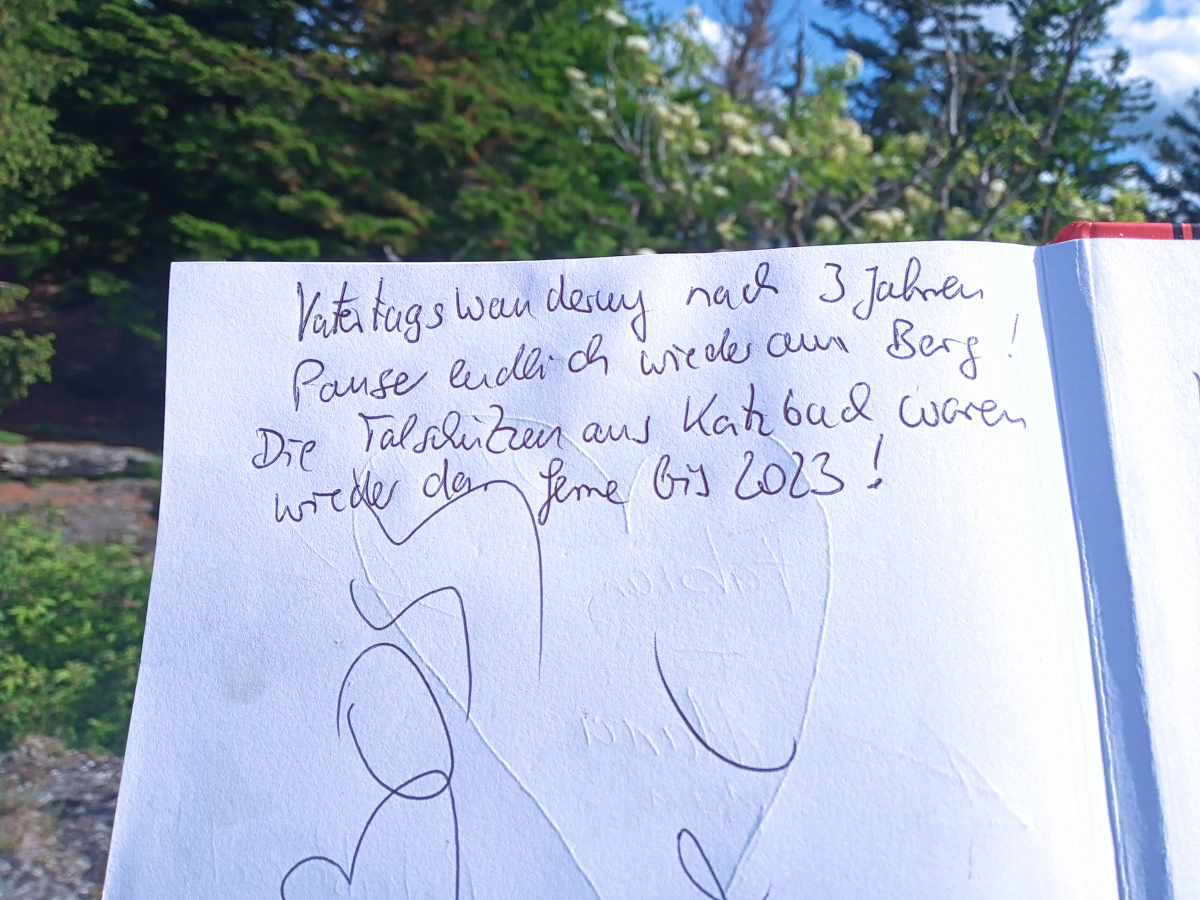 Vatertagswanderung nach 3 Jahren
Pause endlich wieder am Berg!
Die Talschützen aus Katzbach waren
wieder da gerne bis 2023!